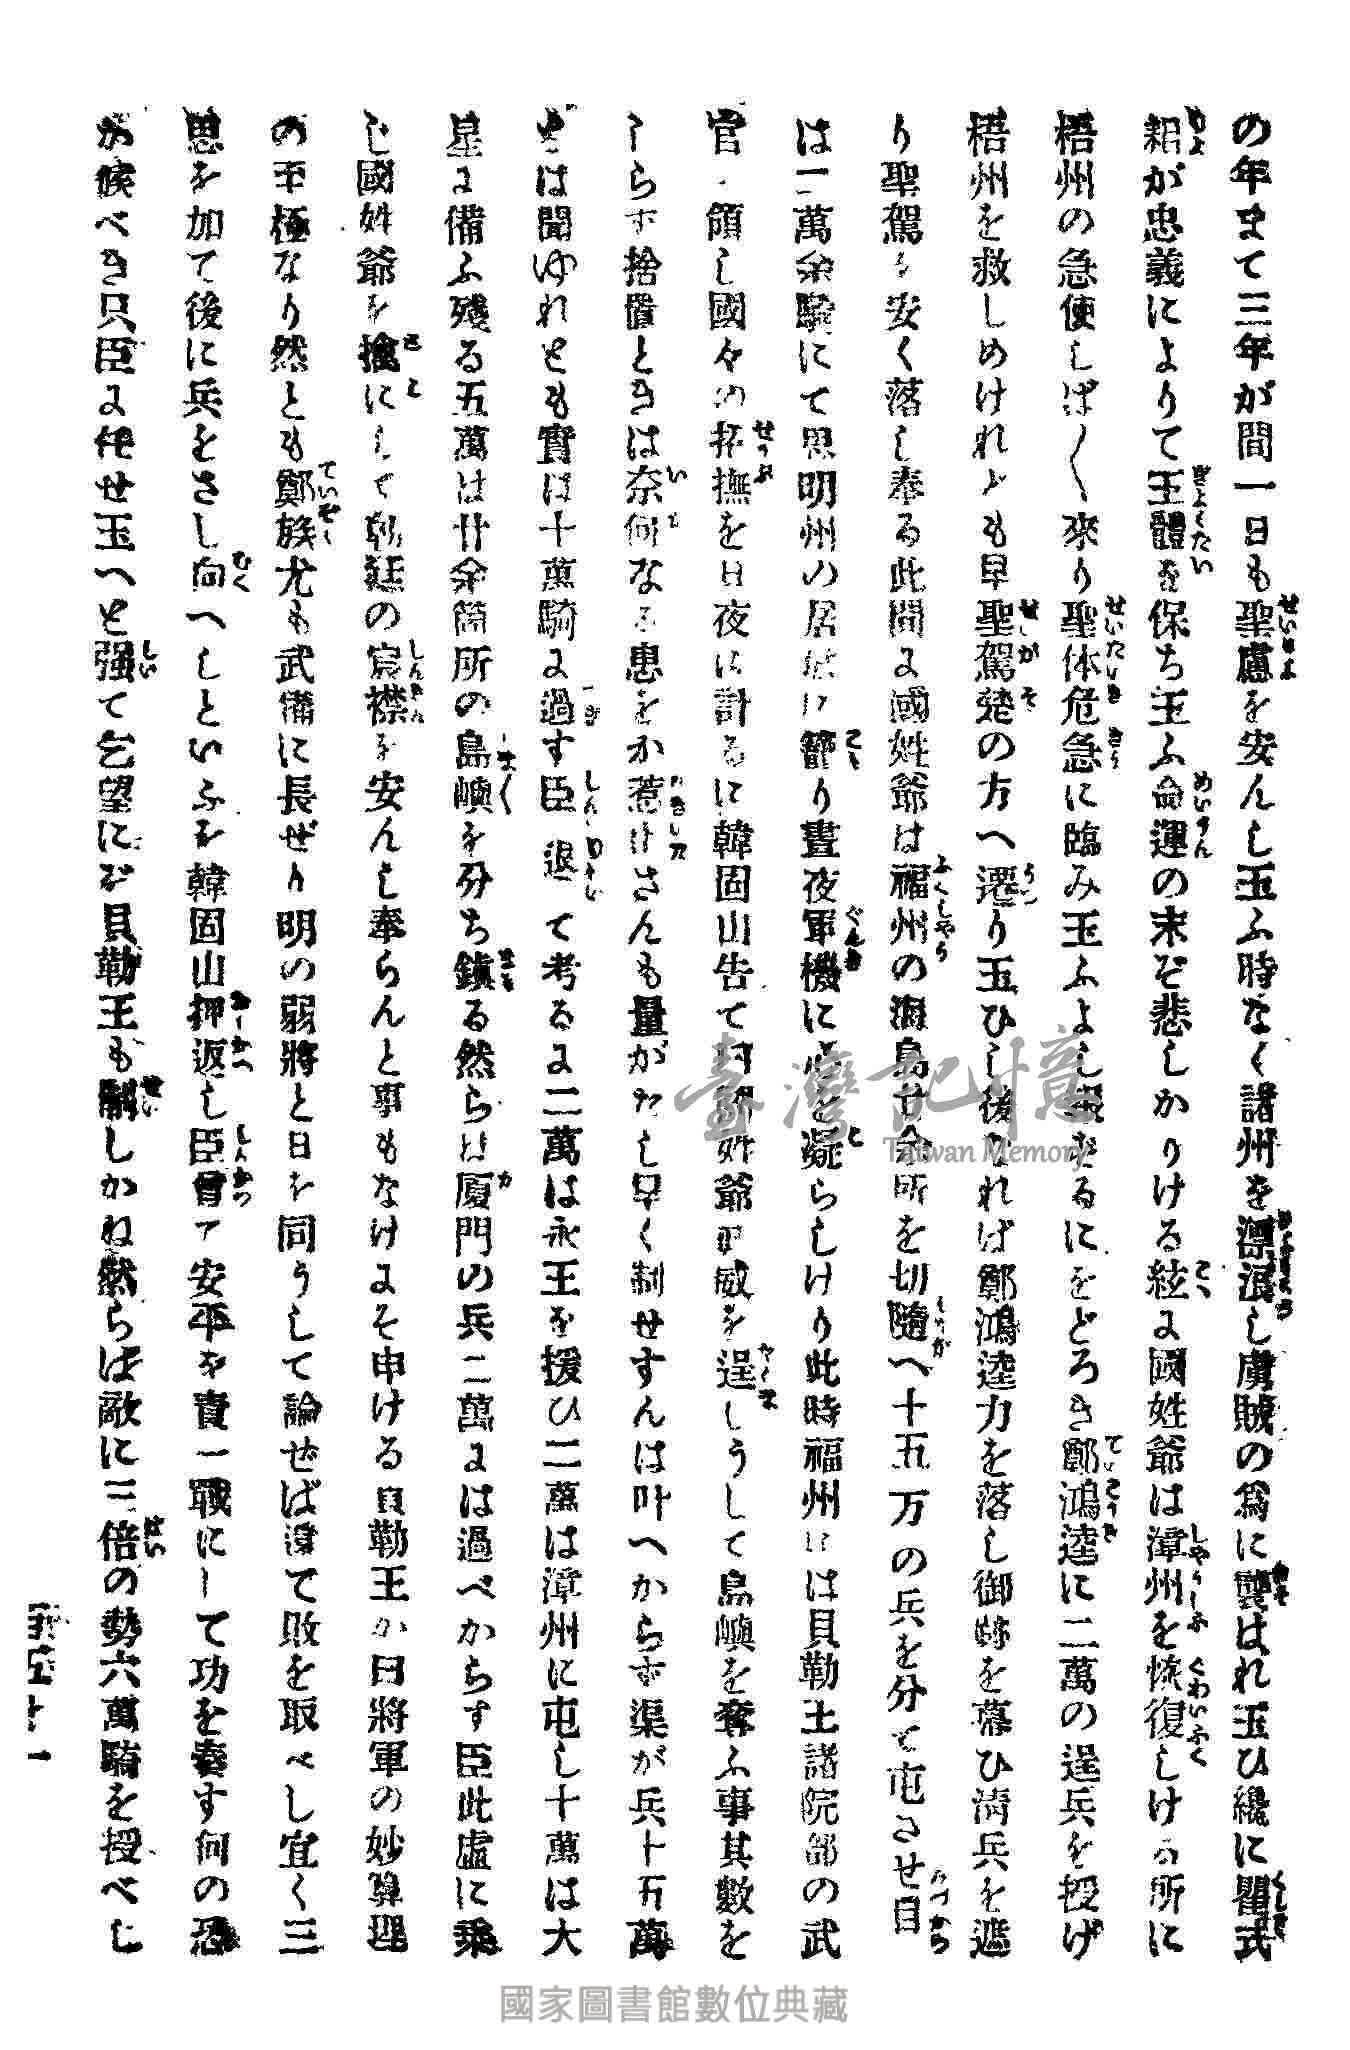 の年まて三年が間一日も聖慮を安んし玉ふ時なく諸州を漂泊し虜賊の爲に襲はれ玉ひ纔に瞿式
耜が忠義によりて玉體を保ち玉ふ命運の末ぞ悲しかりける玆に國姓爺は漳州を恢復しける所に
梧州の急使しば〱來り聖体危急に臨み玉ふよし るにをどろき鄭鴻逵に二萬の逞兵を授げ
梧州を救しめけれども早聖駕 の方へ遷り玉ひし後なれば鄭鴻逵力を落し御跡を慕ひ淸兵を遮
り聖駕を安く落し奉る此間に國姓爺は福州の海島廿余所を切隨へ十五万の兵を分て屯させ自
は二萬余騎にて思明州の居城に籠り晝夜軍機に心を凝らしけり此時福州には貝勒王諸院部の武
官 領し國々の招撫を日夜に計るに韓固山告て曰國姓爺 威を逞しうして島嶼を奪ふ事其數を
しらず捨置ときは奈何なる患をか惹 さんも量がたし早く制せすんは叶へからず渠が兵十五萬
とは聞ゆれとも實は十萬騎に過す臣退て考るに二萬は永王を援ひ二萬は漳州に屯し十萬は大
星に備ふ殘る五萬は廿余箇所の島嶼を分ち鎭る然らは廈門の兵二萬には過べからす臣此虛に乘
じ國姓爺を擒にして朝廷の宸襟を安んし奉らんと事もなけにそ申ける貝勒王か曰將軍の妙算理
の至極なり然とも鄭族尤も武備に長ぜり明の弱將と日を同うして論ぜば違て敗を取べし宜く三
思を加て後に兵をさし向へしといふを韓固山押返し臣曾て安平を責一戰にして功を奏す何の恐
か候べき只臣に任せ玉へと强て乞望にぞ貝勒王も制しかね然らば敵に三倍の勢六萬騎を授べし
臺灣記憶
Taiwan Memory
國家圖書館數位典藏